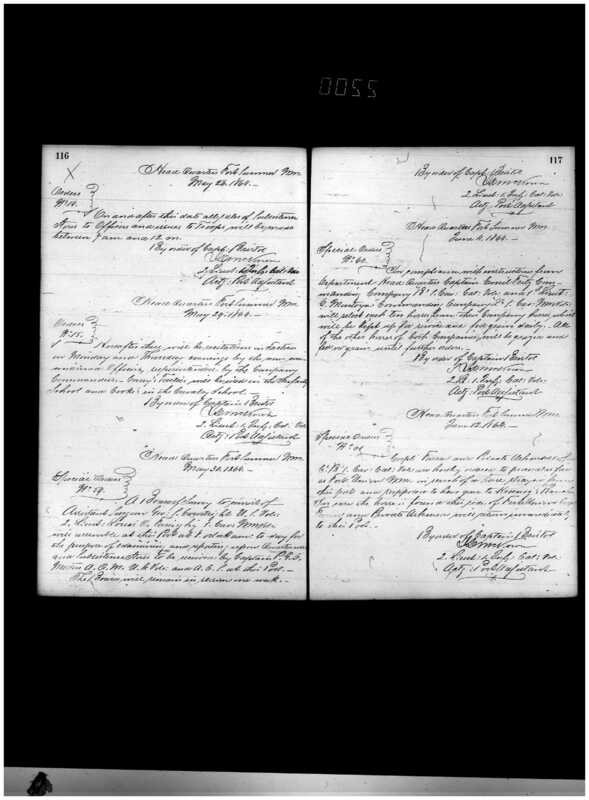 0055
116
Head Quarters Fort Sumner NM
May 26. 1864.
Orders
No. 14.
On and after this date all sales of Subsistence
Stores to Officers and issues to Troops will
between 7 am and 12 m.
By order of Capt.
2. Lieut: 1. Infy: Cal: Vols
Actg: Post Adjutant
Head Quarters Fort Sumner NM
May 29. 1864.
Orders
No. 15.
Hereafter there will be recitations in Tactics
on Monday and Thursday evenings by the non com-
missioned Officers, superintended by the Company
Commanders. Casey's Tactics will be used in the Infantry
School and Cooke's in the Cavalry School.
By order of Captain
2. Lieut: 1. Infy: Cal: Vols
Actg: Post Adjutant
Head Quarters Fort Sumner NM
May 30. 1864.
Special Orders
No. 59.
A Board of Survey to consist of
Assistant Surgeon Geo: S. U.S. Vols:
2. Lieut: 1. Cav: NM Vols
will assemble at this Post at to day for
the purpose of examining and reporting upon Quartermaster
and Subsistence Stores to be received by Captain
A.Q.M. U.S. Vols: and A.C.S. at this Post.
The Board will remain in session one week.
117
By order of Capt:
2. Lieut: 1. Infy: Cal: Vols
Actg: Post Adjutant
Head Quarters Fort Sumner NM
June 1864.
Special Orders
No. 60.
In compliance with instructions from
Department Head Quarters Captain Com-
manding Company "B" 1. Cav: Cal: Vols and 1. Lieut:
C. Montoya Commanding Company 1. Cav: NM Vols
will select each ten horses from their Company horses which
will be kept up for service and fed grain daily. All
of the other horses of both Companies will be grazed and
fed no grain until further orders.
By order of Captain
2. Lt: 1. Infy: Cal: Vols:
Actg: Post Adjutant
Head Quarters Fort Sumner NM
June 12. 1864.
Special Orders
No. 61
Corpl: and Private of
Co. "B" 1. Cav: Cal: Vols: are hereby ordered to proceed as far
as Fort Union NM in search of a horse strayed from
this post and supposed to have gone to
and Private will return immediately
to this Post.
By order of Captain
2. Lieut: 1. Infy: Cal: Vols.
Actg: Post Adjutant